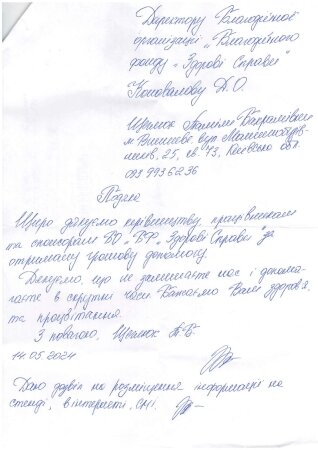 Директору Благодійної
організації „Благодійного
фонду „Здорові Справи"
Коновалову Д.О.
м Вишневе вул
25, кв. 43, Київська обл
093 9936236
Подяка
Щиро дякуємо керівництву, працівникам
та спонсорам БО „БФ „Здорові Справи" за
отриману грошову допомогу.
Дякуємо, що не залишаєте нас і допома-
гаєте в скрутні часи. Бажаємо Вам здоров'я
та процвітання.
З повагою,
14.05.2024
Даю дозвіл на розміщення інформації на
стенді, в інтернеті, СМІ.